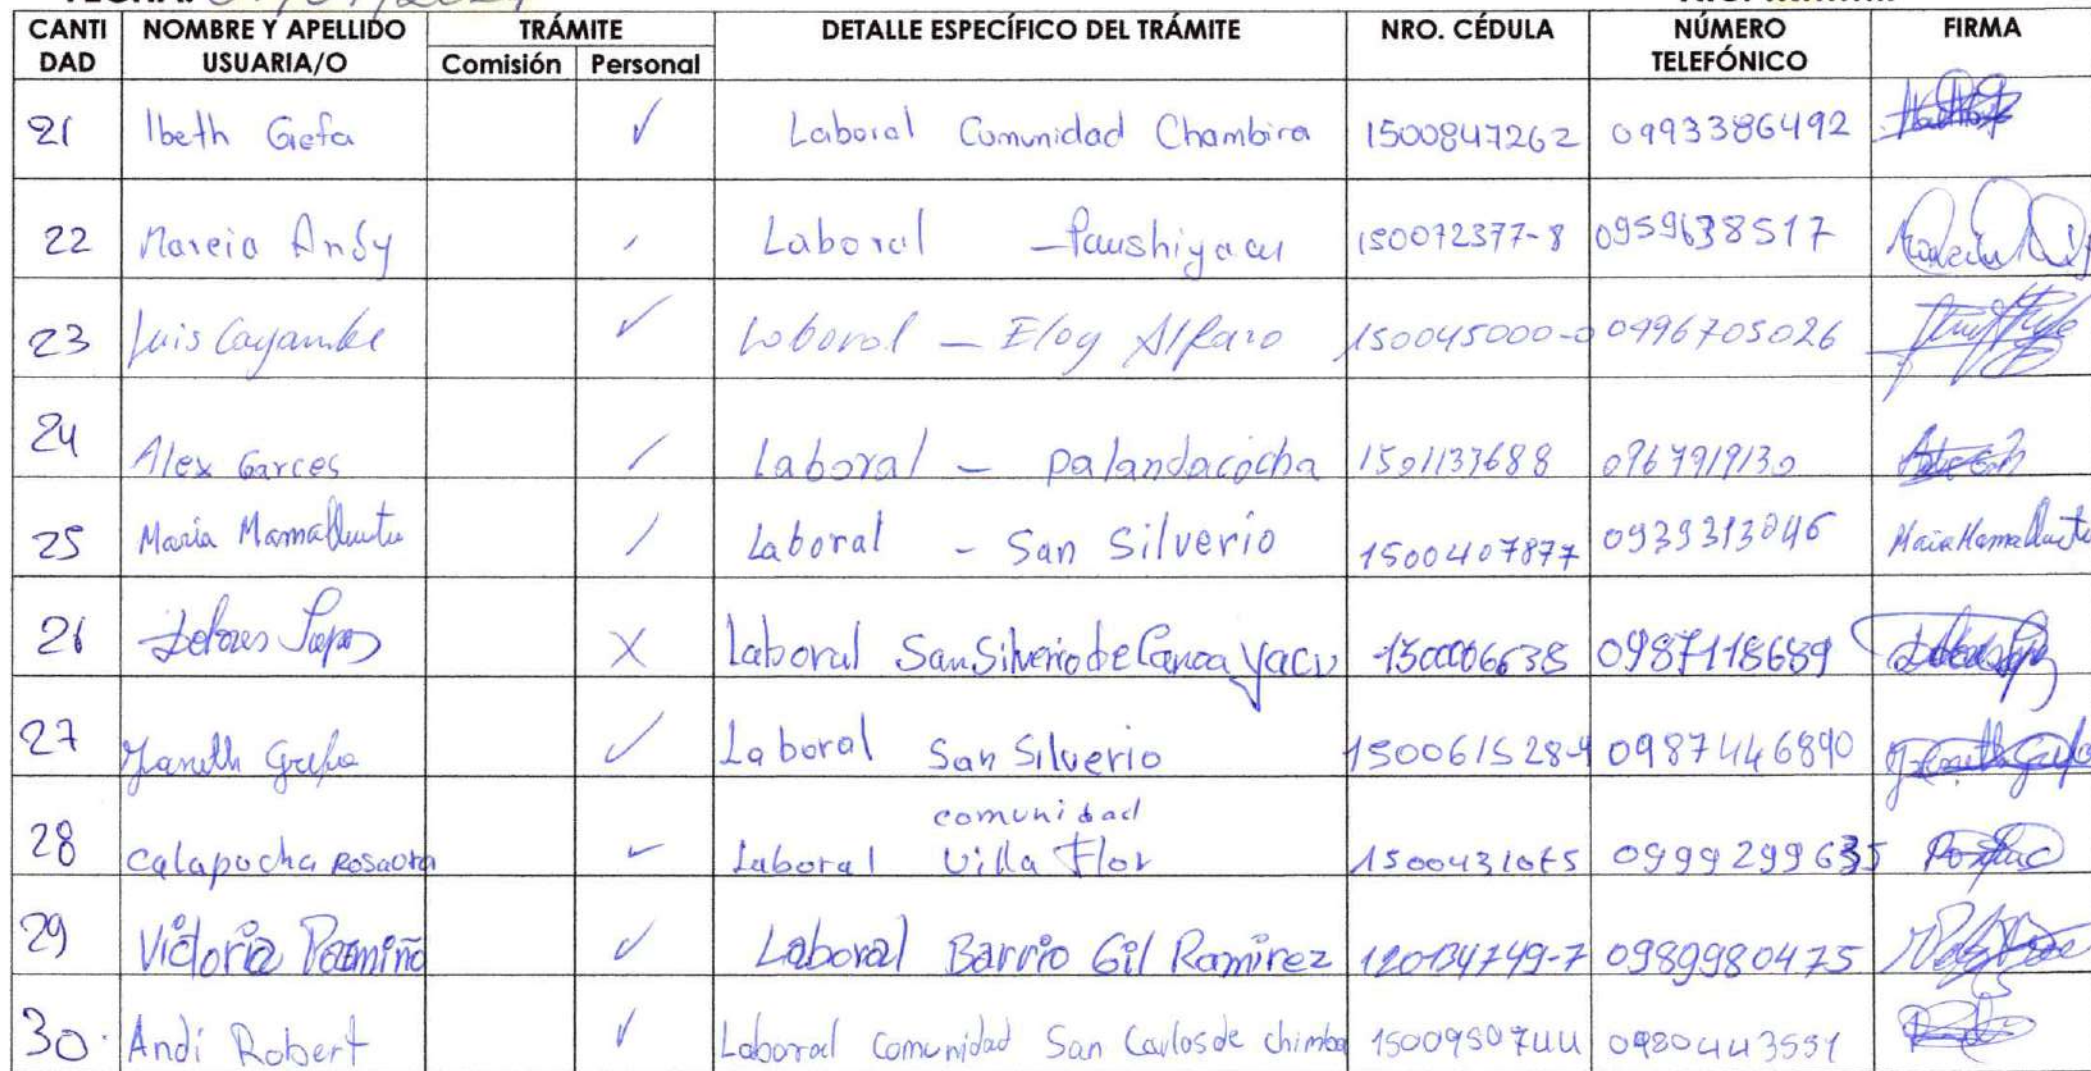 CANTI DAD NOMBRE Y APELLIDO USUARIA/O TRÁMITE Comisión Personal DETALLE ESPECÍFICO DEL TRÁMITE NRO. CÉDULA NÚMERO TELEFÓNICO FIRMA
21 Ibeth Grefa ✓ Laboral Comunidad Chambira 1500847262 0993386492
22 Marcia Andy Laboral - Paushiyacu 150072377-8 0959638517
23 Luis Cayambe ✓ Laboral - Eloy Alfaro 150045000-0 0996705026
24 Alex Garces Laboral - palandacocha 1501133688 0967919130
25 Maria Laboral - San Silverio 1500407877 0939313046
26 Dolores X Laboral San Silverio de Canoa Yacu 1500006638 0987118689
27 Janeth Grefa ✓ Laboral San Silverio 150061528-4 0987446890
28 Calapucha Laboral comunidad Villa Flor 0999299635
29 Victoria ✓ Laboral Barrio Gil Ramirez 120134749-7 0989980475
30 Andi Robert ✓ Laboral Comunidad San Carlos de chimba 1500950744 0980443551